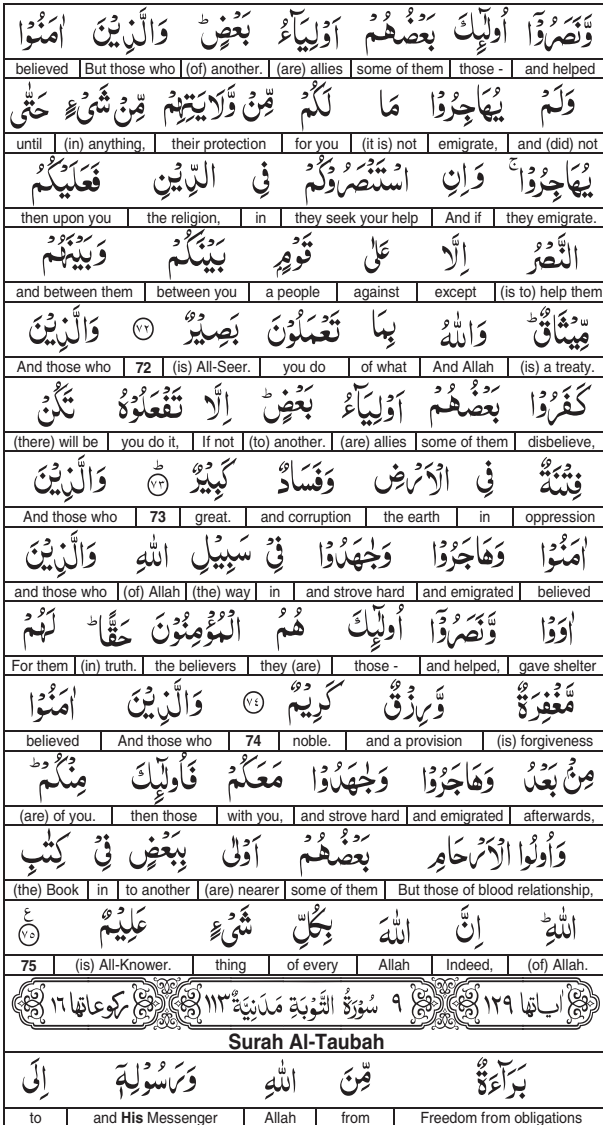 وَّنَصَرُوْۤا اُولٰٓئِكَ بَعْضُهُمْ اَوْلِيَآءُ بَعْضٍؕ وَالَّذِيْنَ اٰمَنُوْا
and helped | those - | some of them | (are) allies | (of) another. | But those who | believed
وَلَمْ يُهَاجِرُوْا مَا لَكُمْ مِّنْ وَّلَايَتِهِمْ مِّنْ شَيْءٍ حَتّٰى
and (did) not | emigrate, | (it is) not | for you | their protection | (in) anything, | until
يُهَاجِرُوْاۚ وَاِنِ اسْتَنْصَرُوْكُمْ فِى الدِّيْنِ فَعَلَيْكُمُ
they emigrate. | And if | they seek your help | in | the religion, | then upon you
النَّصْرُ اِلَّا عَلٰى قَوْمٍۭ بَيْنَكُمْ وَبَيْنَهُمْ
(is to) help them | except | against | a people | between you | and between them
مِّيْثَاقٌؕ وَاللّٰهُ بِمَا تَعْمَلُوْنَ بَصِيْرٌ ٧٢ وَالَّذِيْنَ
(is) a treaty. | And Allah | of what | you do | (is) All-Seer. | 72 | And those who
كَفَرُوْا بَعْضُهُمْ اَوْلِيَآءُ بَعْضٍؕ اِلَّا تَفْعَلُوْهُ تَكُنْ
disbelieve, | some of them | (are) allies | (to) another. | If not | you do it, | (there) will be
فِتْنَةٌ فِى الْاَرْضِ وَفَسَادٌ كَبِيْرٌؕ ٧٣ وَالَّذِيْنَ
oppression | in | the earth | and corruption | great. | 73 | And those who
اٰمَنُوْا وَهَاجَرُوْا وَجٰهَدُوْا فِىْ سَبِيْلِ اللّٰهِ وَالَّذِيْنَ
believed | and emigrated | and strove hard | in | (the) way | (of) Allah | and those who
اٰوَوْا وَّنَصَرُوْۤا اُولٰٓئِكَ هُمُ الْمُؤْمِنُوْنَ حَقًّاؕ لَهُمْ
gave shelter | and helped, | those - | they (are) | the believers | (in) truth. | For them
مَّغْفِرَةٌ وَّرِزْقٌ كَرِيْمٌ ٧٤ وَالَّذِيْنَ اٰمَنُوْا
(is) forgiveness | and a provision | noble. | 74 | And those who | believed
مِنْۢ بَعْدُ وَهَاجَرُوْا وَجٰهَدُوْا مَعَكُمْ فَاُولٰٓئِكَ مِنْكُمْؕ
afterwards, | and emigrated | and strove hard | with you, | then those | (are) of you.
وَاُولُوا الْاَرْحَامِ بَعْضُهُمْ اَوْلٰى بِبَعْضٍ فِىْ كِتٰبِ
But those of blood relationship, | some of them | (are) nearer | to another | in | (the) Book
اللّٰهِؕ اِنَّ اللّٰهَ بِكُلِّ شَيْءٍ عَلِيْمٌ ٧٥ ع
(of) Allah. | Indeed, | Allah | of every | thing | (is) All-Knower. | 75
اٰياتها ١٢٩ ٩ سُوْرَةُ التَّوْبَةِ مَدَنِيَّةٌ ١١٣ ركوعاتها ١٦
Surah Al-Taubah
بَرَآءَةٌ مِّنَ اللّٰهِ وَرَسُوْلِهٖۤ اِلَى
Freedom from obligations | from | Allah | and His Messenger | to